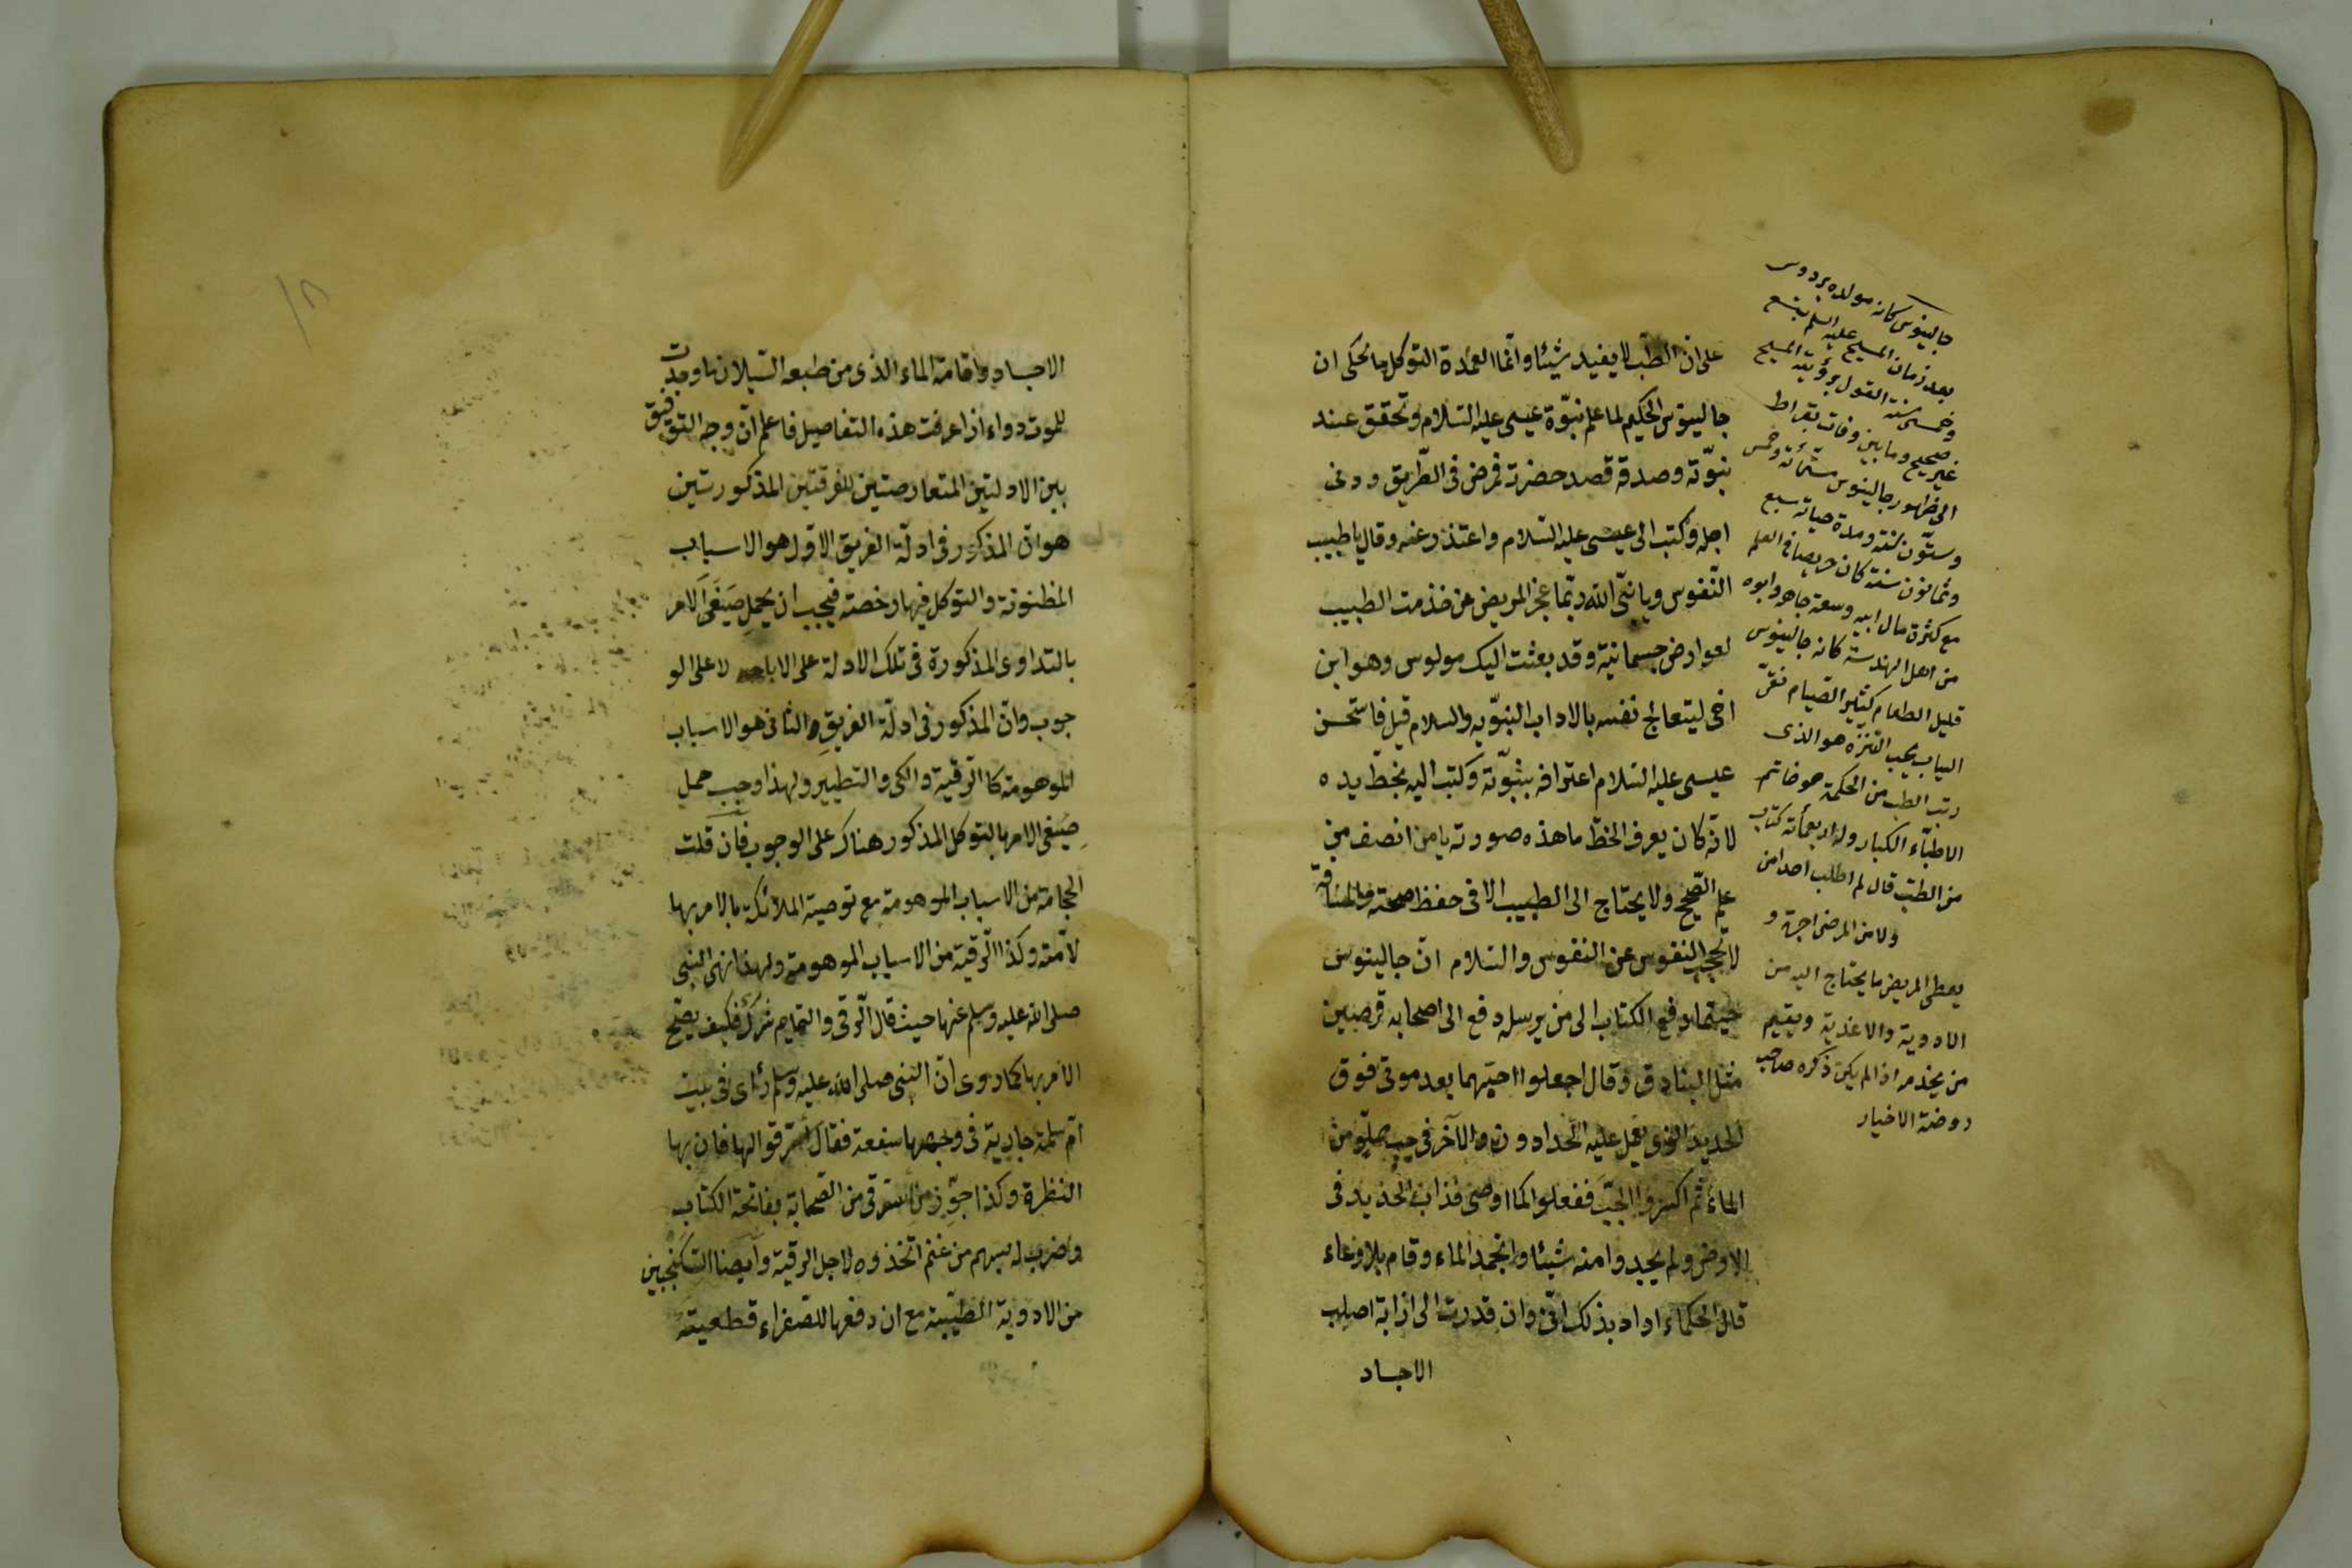 على ان الطب لا يفيد شيئا وانما العمدة التوكل ما يحكى ان
جالينوس الحكيم لما علم نبوة عيسى عليه السلام وتحقق عنده
نبوته وصدقه قصد حضرته فمرض فى الطريق ودنى
اجله وكتب الى عيسى عليه السلام واعتذر عنه وقال يا طبيب
النفوس ويا نبى الله ربما عجز المريض عن خذمت الطبيب
لعوارض جسمانية وقد بعثت اليك مولوس وهو ابن
اخى ليتعالج نفسه بالاداب النبويه والسلام قيل فاستحسن
عيسى عليه السلام اعترافه بنبوته وكتب اليه بخط يده
لانه كان يعرف الخط ما هذه صورته يا من انصف من
علم الصحيح ولا يحتاج الى الطبيب الا فى حفظ صحته والمسافة
لا تحجب النفوس عن النفوس والسلام ان جالينوس
حيثما رفع الكتاب الى من يرسله دفع الى اصحابه قرصين
مثل البنادق وقال اجعلوا احديهما بعد موتى فوق
الحديد الذى يعمل عليه الحدادون والآخر فى حب مملو من
الماء ثم اكسروا الحب ففعلوا كما اوصى فذاب الحديد فى
الارض ولم يجدوا منه شيئا وانجمد الماء وقام بلا وعاء
قال الحكماء اراد بذلك انى وان قدرت الى اذابة اصلب
الاجساد
جالينوس كان مولده بردوس
بعد زمان المسيح عليه السلم بتسع
وخمسين سنة القول برؤيته المسيح
غير صحيح وما بين وفات بقراط
الى ظهور جالينوس ستمائة وخمس
وستون سنة ومدة حياته سبع
وثمانون سنة كان حريصا فى العلم
مع كثرة مال ابيه وسعة جاهه وابوه
من اهل الهندسة كان جالينوس
قليل الطعام كثير الصيام نقى
الثياب يحب التنزه هو الذى
رتب الطب من الحكمة هو خاتم
الاطباء الكبار وله اربعمأئة كتاب
من الطب قال لم اطلب احدا من
ولا من المرضى اجرة و
يعطى المريض ما يحتاج اليه من
الادوية والاغذية ويقيم
من يخدمه اذا لم يكن ذكره صاحب
روضة الاخيار
١٨
الاجساد واقامة الماء الذى من طبعه السيلان ما وجدت
للموت دواء اذا عرفت هذه التفاصيل فاعلم ان وجه التوفيق
بين الادلتين المتعارضتين للفرقتين المذكورتين
هو ان المذكور فى ادلة الفريق الاول هو الاسباب
المظنونة والتوكل فيها رخصة فيجب ان يحمل صيغى الامر
بالتداوى المذكورة فى تلك الادلة على الاباحه لا على الو
جوب وان المذكور فى ادلة الفريق الثانى هو الاسباب
الموهومة كالرقية والكى والتطيير ولهذا وجب حمل
صيغى الامر بالتوكل المذكور هناك على الوجوب فان قلت
الحجامة من الاسباب الموهومة مع توصية الملائكة بالامر بها
لامته وكذا الرقية من الاسباب الموهومة ولهذا نهى النبى
صلى الله عليه وسلم عنها حيث قال الرقى والتمايم شرك فكيف يصح
الامر بها كما روى ان النبى صلى الله عليه وسلم رأى فى بيت
ام سلمة جارية فى وجهها سفعة فقال استرقوا لها فان بها
النظرة وكذا جوز من استرقى من الصحابة بفاتحة الكتاب
واضرب له بسهم من غنم اتخذوه لاجل الرقية وايضا السكنجبين
من الادوية الطبية مع ان دفعها للصفراء قطعية